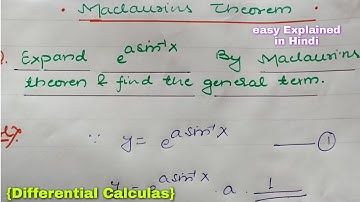 • Maclaurins Theorem •
easy Explained
in Hindi
Expand e^{a sin⁻¹x} By Maclaurins
theoren & find the general term.
∵ y = e^{a sin⁻¹x} —— ①
{Differential Calculas}
y₁ = e^{a sin⁻¹x} · a · 1